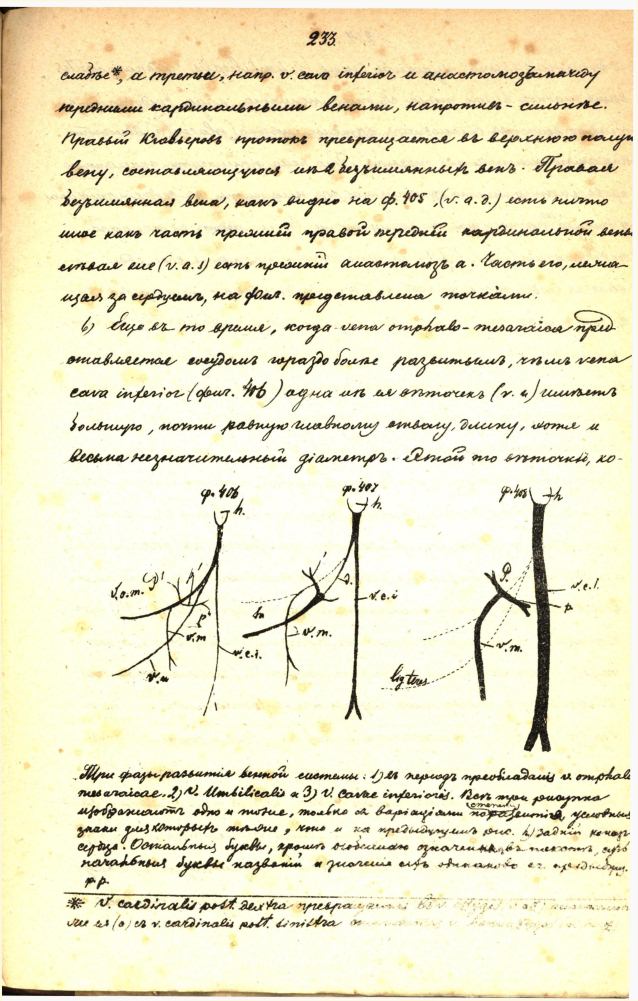 233.
слабѣе*, а третьи, напр. v. cava inferior и анастомозъ между
передними кардинальными венами, напротивъ - сильнѣе.
Правый Кювьеровъ протокъ превращается въ верхнюю полую
вену, составляющуюся изъ 2 безъимянныхъ венъ. Правая
безъимянная вена, какъ видно на ф. 405, (v. a. d.) есть ничто
иное какъ часть прежней правой передней кардинальной вены
лѣвая же (v. a. s) есть прежній анастомозъ a. Часть его, лежа-
щая за сердцемъ, на фиг. представлена точками.
6) Еще въ то время, когда vena omphalo-mesaraica пред-
ставляется сосудомъ гораздо более развитымъ, чѣмъ vena
cava inferior (фиг. 406) одна изъ ея вѣточекъ (v. u) имѣетъ
большую, почти равную главному стволу, длину, хотя и
весьма незначительный діаметръ. Этой то вѣточкѣ, ко-
ф. 406
h.
v. o. m.
P'
p'
v. m
v. u
v. c. i.
ф. 407
h.
v. c. i
v. m.
ф. 408
h
P.
v. c. i.
p
v. m.
lig teres
Три фазы развитія венной системы: 1) въ періодъ преобладанія v. omphalo
mesaraicae, 2) V. Umbilicalis и 3) V. cavae inferioris. Всѣ три рисунка
изображаютъ одно и тоже, только съ варіаціями степени развитія, условные
знаки для которыхъ тѣ же, что и на предыдущемъ рис. h) задній конецъ
сердца. Остальныя буквы, кромѣ особенно означенныхъ въ текстѣ, суть
начальныя буквы названій и значеніе ихъ одинаково съ предыдущ.
* V. cardinalis post. dextra превращается
v. cardinalis post. sinistra